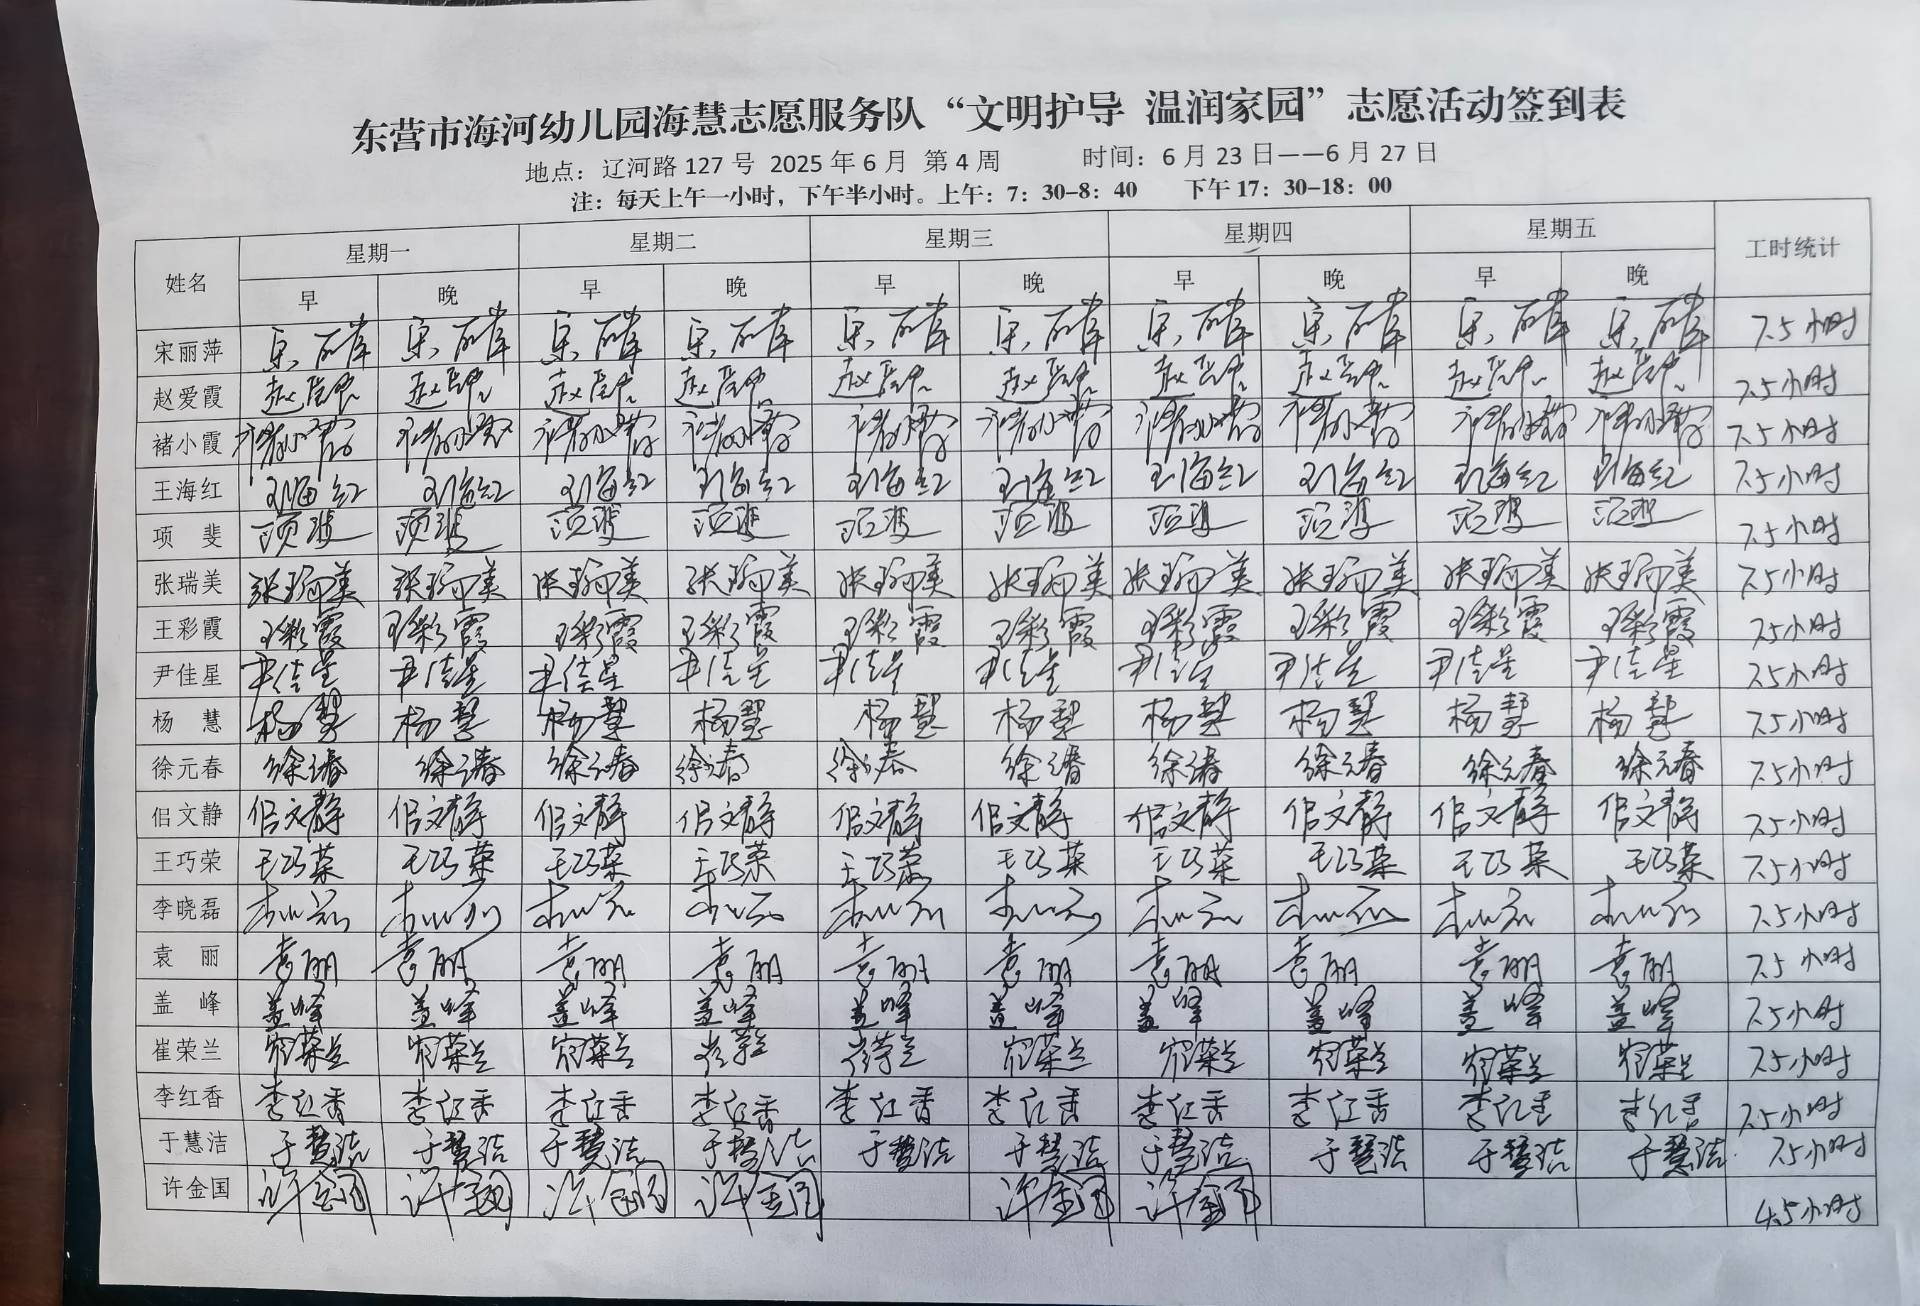 东营市海河幼儿园海慧志愿服务队“文明护导 温润家园”志愿活动签到表
地点：辽河路 127 号 2025 年 6 月 第 4 周 时间：6 月 23 日——6 月 27 日
注：每天上午一小时，下午半小时。上午：7：30-8：40 下午 17：30-18：00
姓名 星期一 星期二 星期三 星期四 星期五 工时统计
早 晚 早 晚 早 晚 早 晚 早 晚
宋丽萍 宋丽萍 宋丽萍 宋丽萍 宋丽萍 宋丽萍 宋丽萍 宋丽萍 宋丽萍 宋丽萍 宋丽萍 7.5小时
赵爱霞 赵爱霞 赵爱霞 赵爱霞 赵爱霞 赵爱霞 赵爱霞 赵爱霞 赵爱霞 赵爱霞 赵爱霞 7.5小时
褚小霞 褚小霞 褚小霞 褚小霞 褚小霞 褚小霞 褚小霞 褚小霞 褚小霞 褚小霞 褚小霞 7.5小时
王海红 王海红 王海红 王海红 王海红 王海红 王海红 王海红 王海红 王海红 王海红 7.5小时
项 斐 项斐 项斐 项斐 项斐 项斐 项斐 项斐 项斐 项斐 项斐 7.5小时
张瑞美 张瑞美 张瑞美 张瑞美 张瑞美 张瑞美 张瑞美 张瑞美 张瑞美 张瑞美 张瑞美 7.5小时
王彩霞 王彩霞 王彩霞 王彩霞 王彩霞 王彩霞 王彩霞 王彩霞 王彩霞 王彩霞 王彩霞 7.5小时
尹佳星 尹佳星 尹佳星 尹佳星 尹佳星 尹佳星 尹佳星 尹佳星 尹佳星 尹佳星 尹佳星 7.5小时
杨 慧 杨慧 杨慧 杨慧 杨慧 杨慧 杨慧 杨慧 杨慧 杨慧 杨慧 7.5小时
徐元春 徐元春 徐元春 徐元春 徐元春 徐元春 徐元春 徐元春 徐元春 徐元春 徐元春 7.5小时
佀文静 佀文静 佀文静 佀文静 佀文静 佀文静 佀文静 佀文静 佀文静 佀文静 佀文静 7.5小时
王巧荣 王巧荣 王巧荣 王巧荣 王巧荣 王巧荣 王巧荣 王巧荣 王巧荣 王巧荣 王巧荣 7.5小时
李晓磊 李晓磊 李晓磊 李晓磊 李晓磊 李晓磊 李晓磊 李晓磊 李晓磊 李晓磊 李晓磊 7.5小时
袁 丽 袁丽 袁丽 袁丽 袁丽 袁丽 袁丽 袁丽 袁丽 袁丽 袁丽 7.5小时
盖 峰 盖峰 盖峰 盖峰 盖峰 盖峰 盖峰 盖峰 盖峰 盖峰 盖峰 7.5小时
崔荣兰 崔荣兰 崔荣兰 崔荣兰 崔荣兰 崔荣兰 崔荣兰 崔荣兰 崔荣兰 崔荣兰 崔荣兰 7.5小时
李红香 李红香 李红香 李红香 李红香 李红香 李红香 李红香 李红香 李红香 李红香 7.5小时
于慧洁 于慧洁 于慧洁 于慧洁 于慧洁 于慧洁 于慧洁 于慧洁 于慧洁 于慧洁 于慧洁 7.5小时
许金国 许金国 许金国 许金国 许金国 许金国 许金国 4.5小时